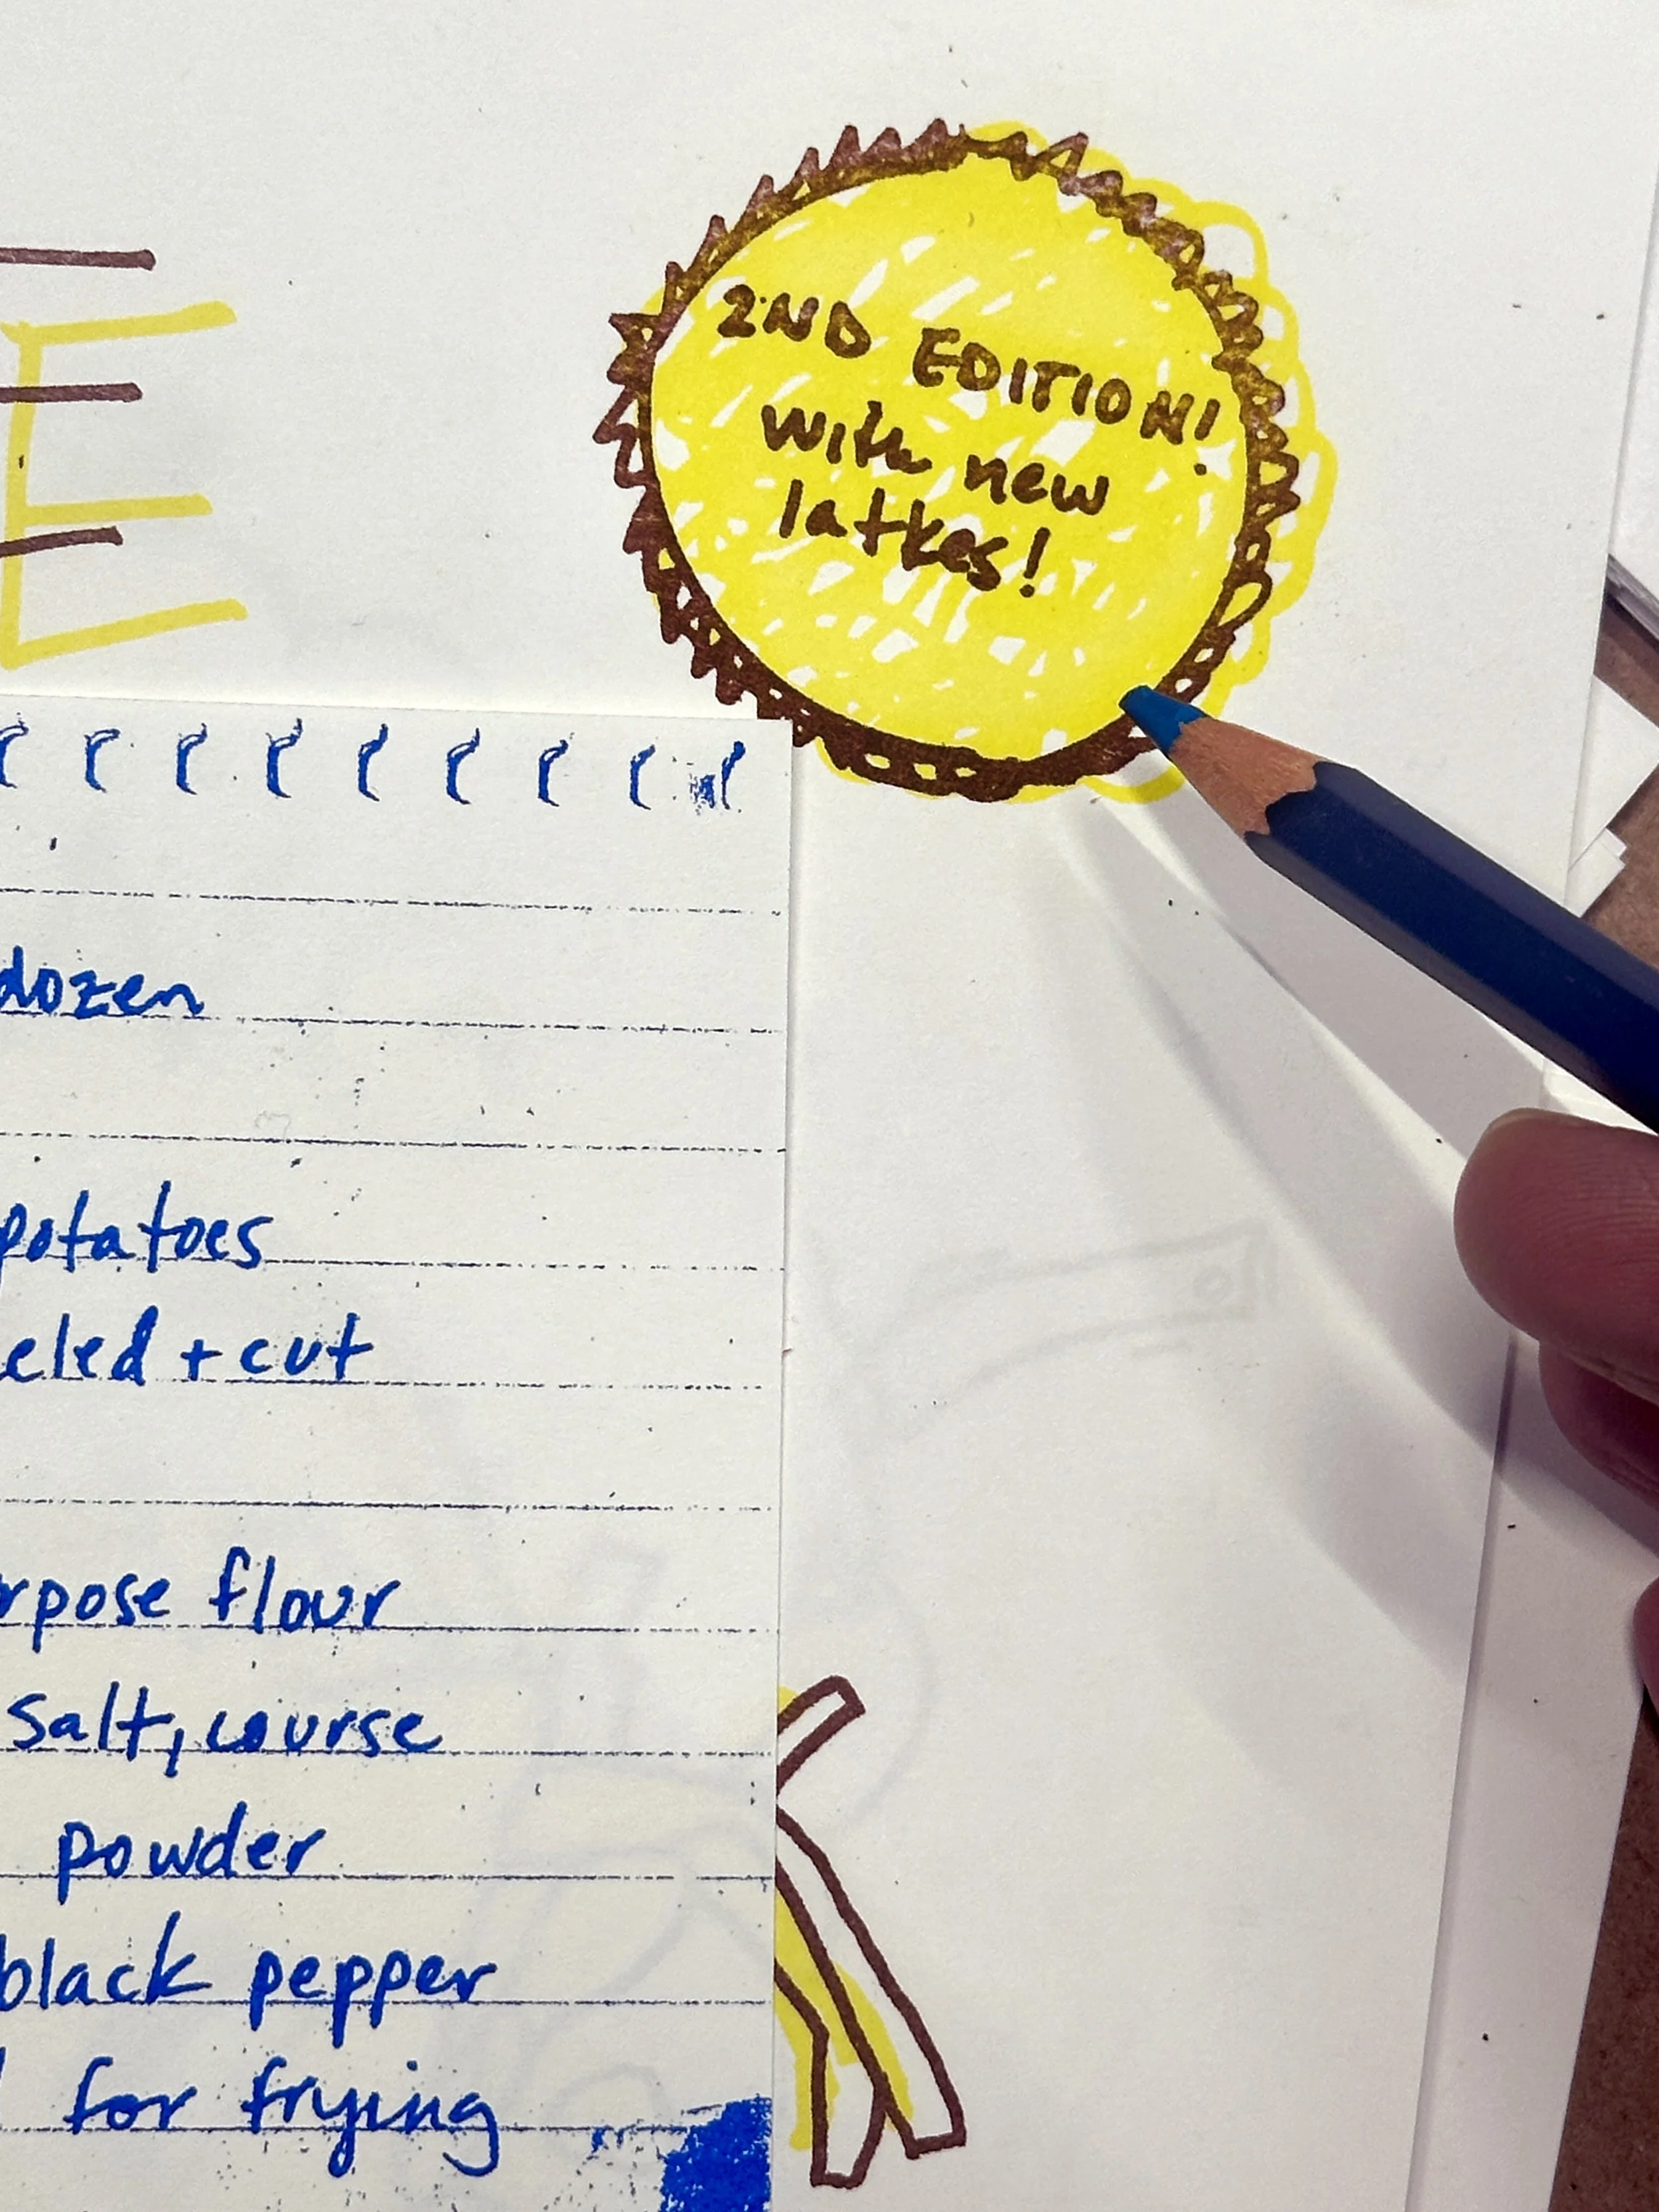 E
E
2ND EDITION!
with new
latkes!
dozen
potatoes
eled + cut
rpose flour
salt, course
powder
black pepper
for frying